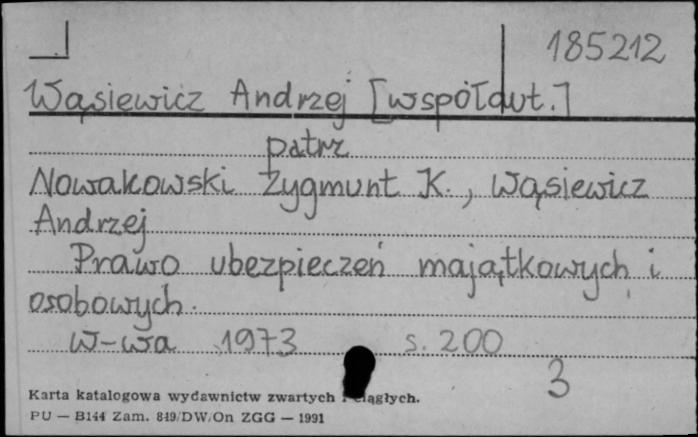 185212
Wąsiewicz Andrzej [współaut.]
patrz
Nowakowski Zygmunt K., Wąsiewicz
Andrzej
Prawo ubezpieczeń majątkowych i
osobowych.
W-wa 1973 s. 200
3
Karta katalogowa wydawnictw zwartych i ciągłych.
PU — B144 Zam. 849/DW/On ZGG — 1991